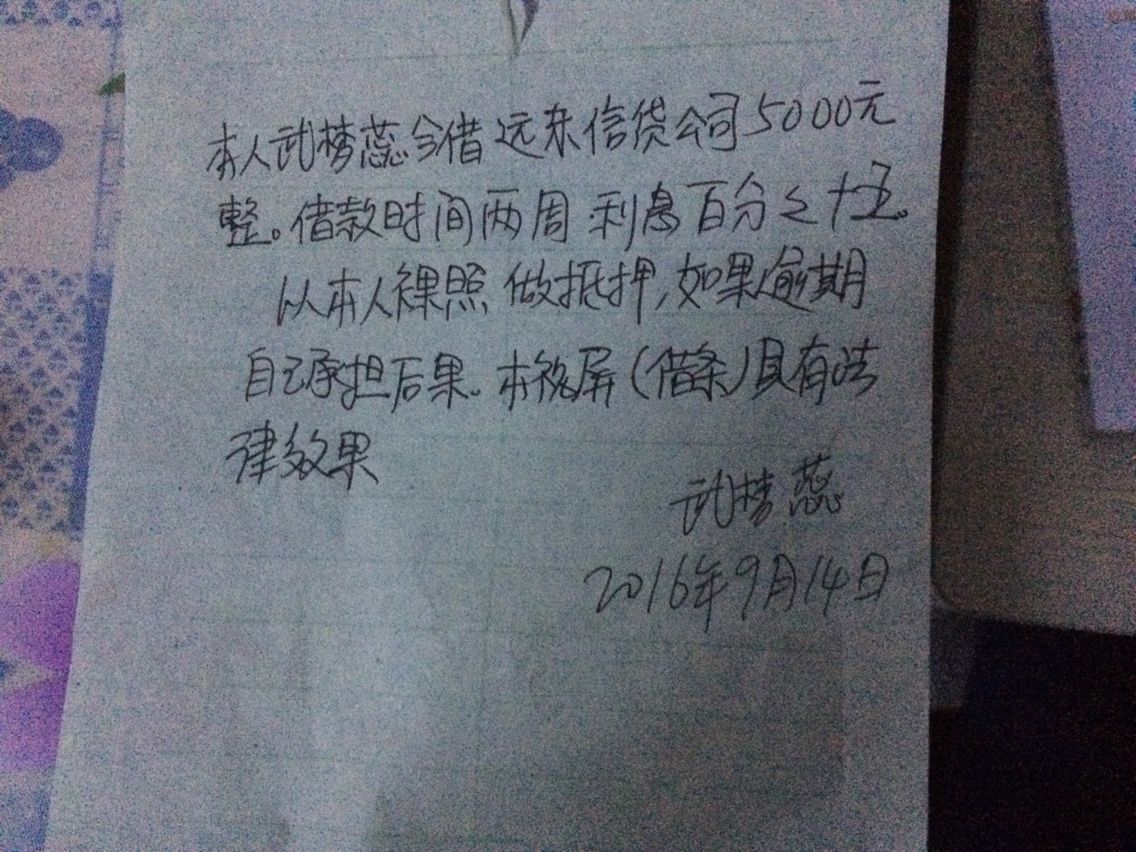 本人武梦蕊今借远来信贷公司5000元
整。借款时间两周 利息百分之十五。
以本人裸照 做抵押，如果逾期
自己承担后果。本 (借条)具有法
律效果
武梦蕊
2016年9月14日